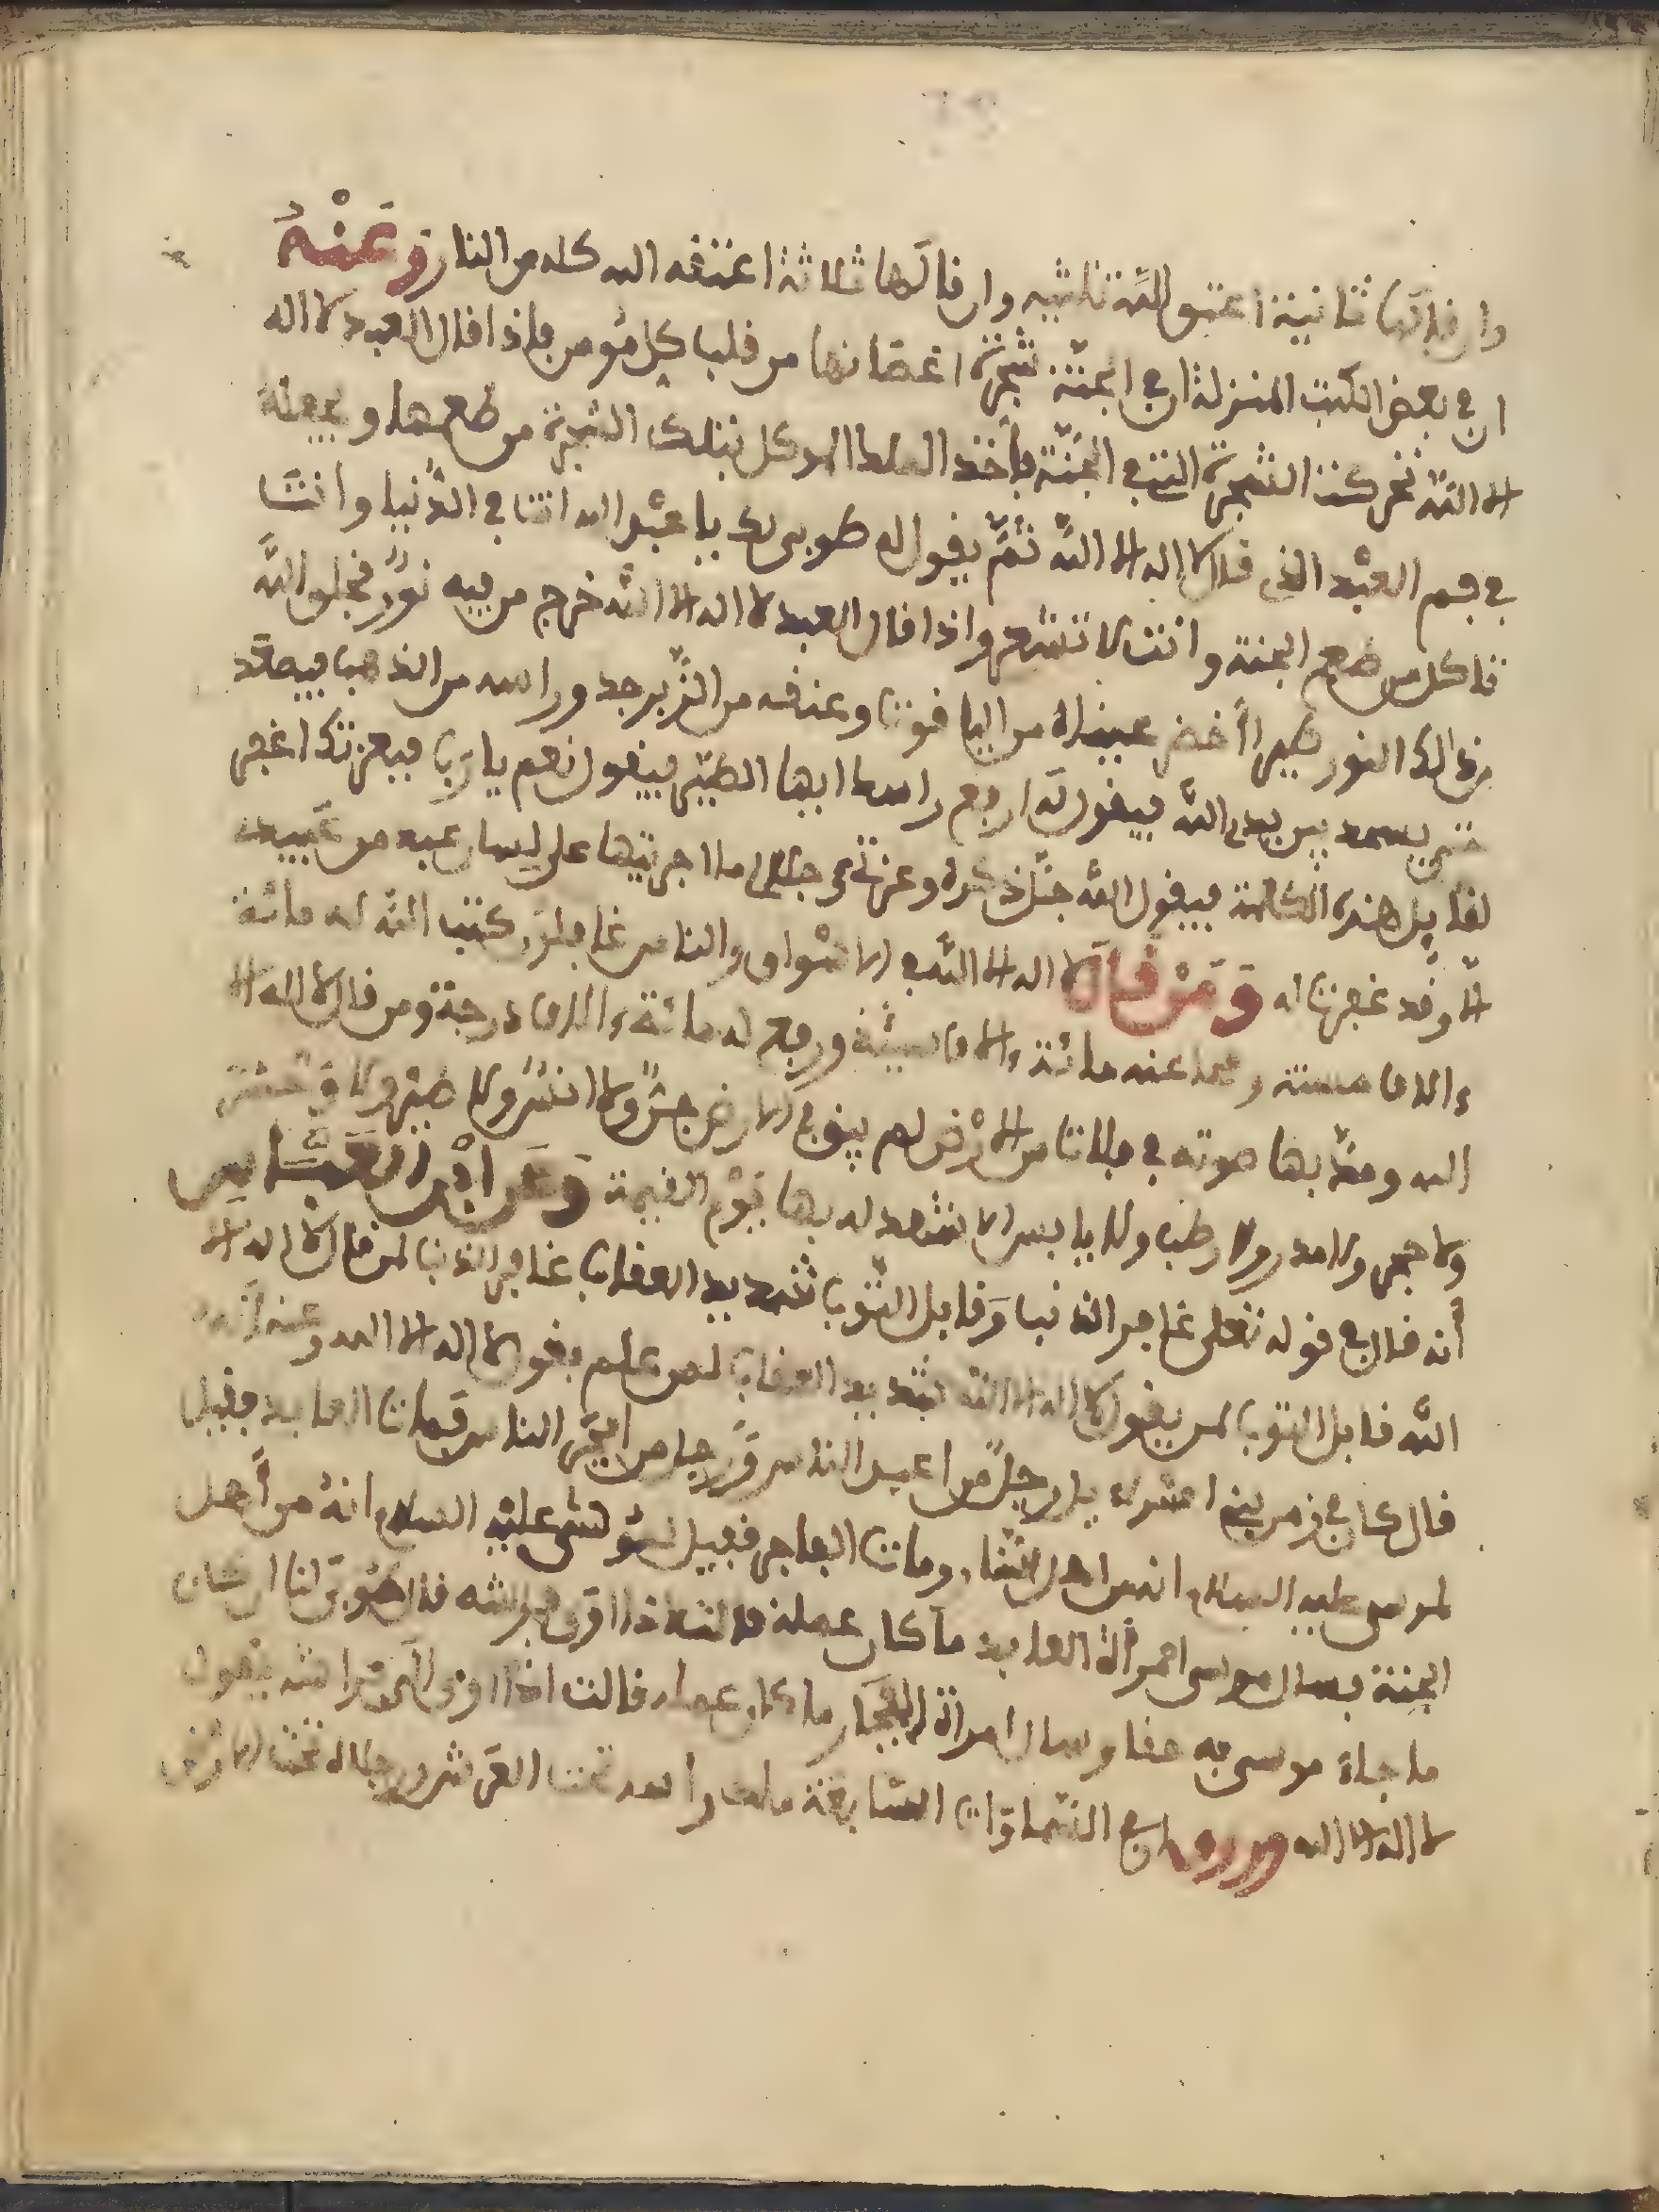 وان قالها ثانية اعتق الله ثلثيه وان قالها ثلاثة اعتقه الله كله من النار وَعَنْهُ
ان في بعض الكتب المنزلة ان في الجنّة شجرة اغصانها من قلب كل مُومن فاذا قال العبد لا اله
الا اللّه تحركت الشجرة التي في الجنّة فياخذ الملك الموكل بتلك الشجرة من طعمها ويجعله
في فم العبْد الذي قال لا اله الا اللّه ثمَّ يقول له طوبى لك يا عبْد الله انت في الدُّنيا وانت
تاكل من طعم الجنة وانت لا تشعر واذا قال العبد لا اله الا اللّه خرج من فيه نورٌ فيخلق اللّه
من ذالك النور طيرا أخضر عيناه من الياقوت وعنقه من الزّبرجد وراسه من الذهب فيصعَد
حتى يسجد بين يدي اللّه فيقول له ارفع راسك ايها الطيْر فيقول نعم يا رَب فبعزتك اغفر
لقايل هذه الكلمة فيقول اللّه جَلّ ذكره وعزتي وجلالي ما اجريتها على لسان عبد من عبيدي
الا وقد غفرت له وَمَنْ قالَ لا اله الا اللّه في الاسْواق والناس غافلون كتب اللّه له مائة
ءالاف حسنة ومحا عنه مائة ءالاف سيئة ورفع له مائة ءالاف درجة ومن قال لا اله الا
الله ومدَّ بها صوته في فلات من الارْض لم يبق في الارض جنٌّ ولا انسٌ ولا طيْر ولا وَحش
ولا حجر ولا مدر ولا رطب ولا يابس الا شهد له بها يَوْم القيمة وَعَن ابْن العَبَّاس
أنه قال في قوله تعلى غافر الذنب وَقابل التَّوب شديد العقاب غافر الذنب لمن قال لا اله الا
اللّه قابل التوب لمن يقول لا اله الا اللّه شديد العقاب لمن لم يقول لا اله الا الله وعنه أنه
قال كان في زمن بني اسراءيل رجلٌ من اعبد الناس وَرجل من افجَر الناس فمات العابد فقيل
لموسى عليه السلام انه من اهل النّار ومات الفاجر فقيل لمُوسَى عليْه السلام انه من أهل
الجنة فسال موسى امرأة العابد ما كان عمله قالت اذا اوى فراشه قال طُوبَى لنا ان كان
ما جاء موسى به حقا وسال امراة الفجَار ما كان عمله قالت اذا اوى الى فراشه يقول
لا اله الا الله وروي ان في السّماوَات السَّابعَة ملك راسه تحت العَرش ورجلاه تحت الارْض